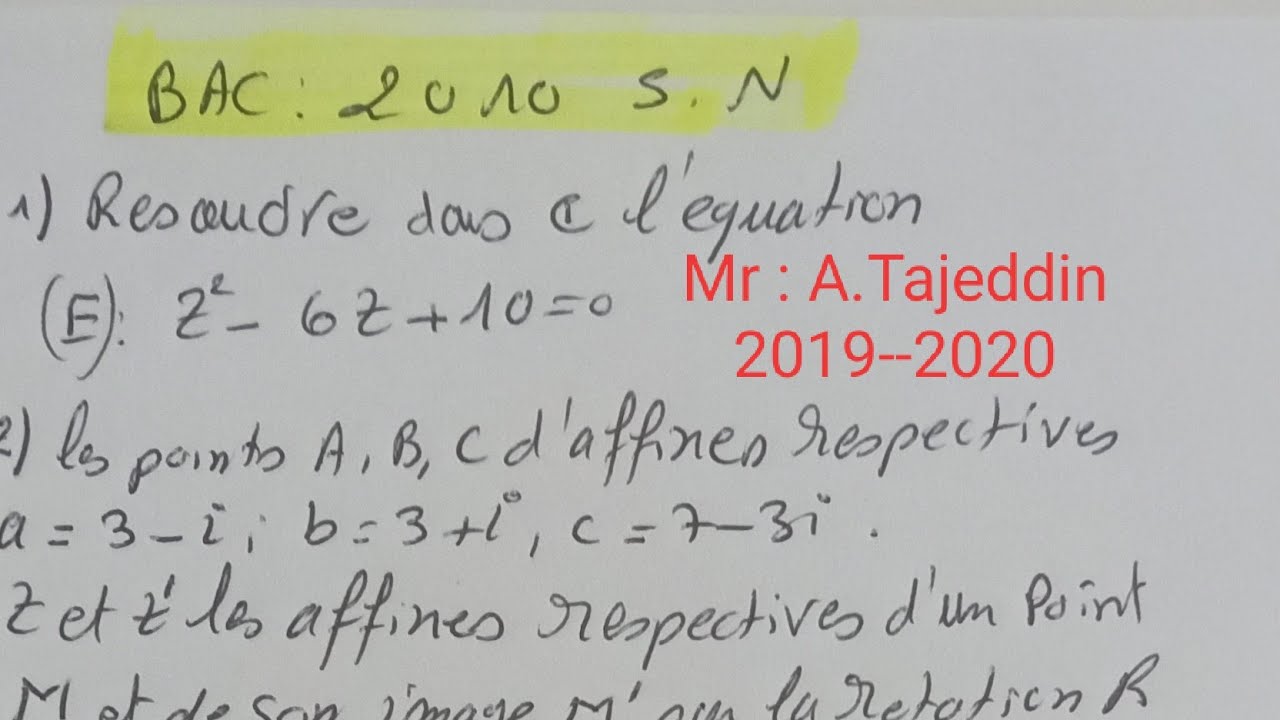 BAC: 2010 S.N
1) Resoudre dans ℂ l'équation
(E): z² - 6z + 10 = 0
Mr : A.Tajeddin
2019--2020
2) les points A, B, C d'affixes respectives
a = 3 - i ; b = 3 + i , c = 7 - 3i .
z et z' les affixes respectives d'un Point
M et de son image M' par la rotation R